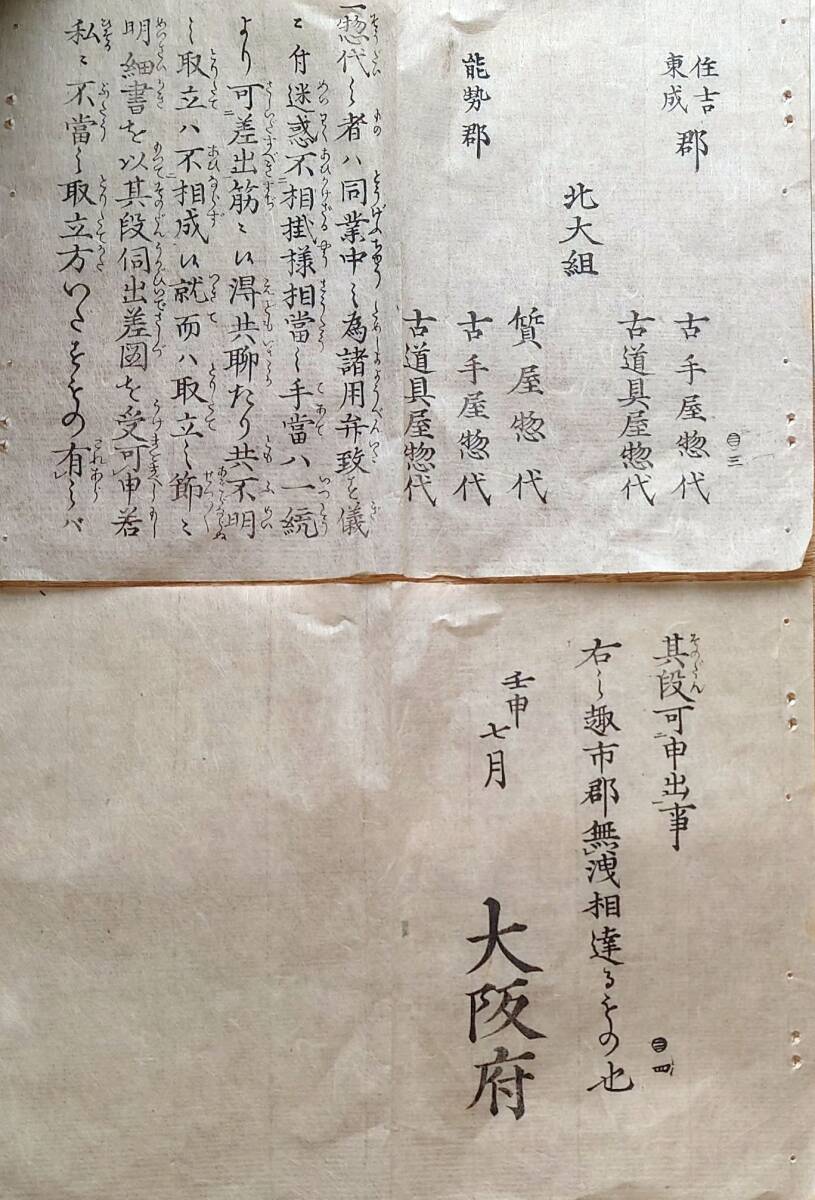 住吉
東成 郡
古手屋惣代
古道具屋惣代
北大組
質屋惣代
能勢郡
古手屋惣代
古道具屋惣代
㊂三
一惣代之者ハ同業中之為諸用弁致を儀
ニ付迷惑不相掛様相當之手當ハ一統
より可差出筋ニ候得共聊たり共不明
之取立ハ不相成候就而ハ取立之節ニ
明細書を以其段伺出差図を受可申若
私ニ不當之取立方いたすもの有之ハ
其段可申出事
右之趣市郡無洩相達るもの也
㊂四
壬申七月
大阪府